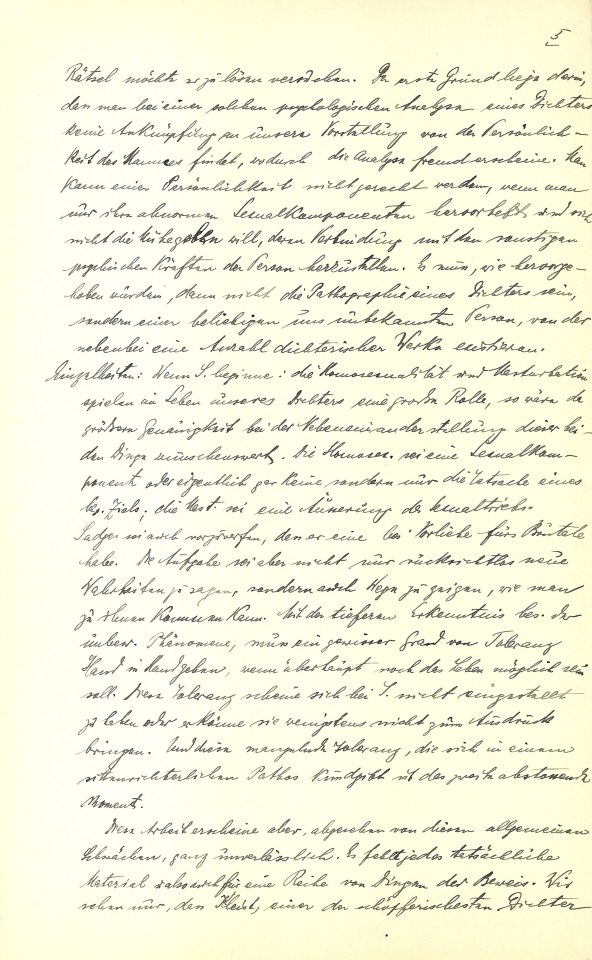 5
Rätsel möchte er zu lösen verstehen. Der erste Grund liege darin,
dass man bei einer solchen psychologischen Analyse eines Dichters
keine Anknüpfung an unsere Vorstellung von der Persönlich-
keit des Mannes findet, wodurch die Analyse fremd erscheine. Man
kann einer Persönlichkeit nicht gerecht werden, wenn man
nur ihre abnormen Sexualkomponenten hervorhebt und sich
nicht die Mühe geben will, deren Verbindung mit den sonstigen
psychischen Kräften der Person herzustellen. Es muss, wie hervorge-
hoben wurden, dann nicht die Pathographie eines Dichters sein,
sondern einer beliebigen uns unbekannten Person, von der
nebenbei eine Anzahl dichterischer Werke existieren.
Einzelheiten: Wenn S. beginne: die Homosexualität und Masturbation
spielen im Leben unseres Dichters eine große Rolle, so wäre da
größere Genauigkeit bei der Nebeneinanderstellung dieser bei-
den Dinge wünschenswert. Die Homosex. sei eine Sexualkom-
ponente oder eigentlich gar keine sondern nur die Tatsache eines
bes. Ziels; die Mast. sei eine Äusserung des Sexualtriebs.
Sadger sei auch vorzuwerfen, dass er eine bes. Vorliebe fürs Brutale
habe. Die Aufgabe sei aber nicht nur rücksichtlos neue
Wahrheiten zu sagen, sondern auch Wege zu zeigen, wie man
zu ihnen kommen kann. Mit der tieferen Erkenntnis bes. der
unbew. Phänomene, muss ein gewisser Grad von Toleranz
Hand in Hand gehen, wenn überhaupt noch das Leben möglich sein
soll. Diese Toleranz scheine sich bei S. nicht eingestellt
zu haben oder er könne sie wenigstens nicht zum Ausdruck
bringen. Und diese mangelnde Toleranz, die sich in einem
sittenrichterlichen Pathos kundgibt ist das zweite abstossende
Moment.
Diese Arbeit erscheine aber, abgesehen von diesen allgemeinen
Schwächen, ganz unverlässlich. Es fehlt jedes tatsächliche
Material also auch für eine Reihe von Dingen der Beweis. Wir
sehen nur, dass Kleist, einer der schöpferischesten Dichter